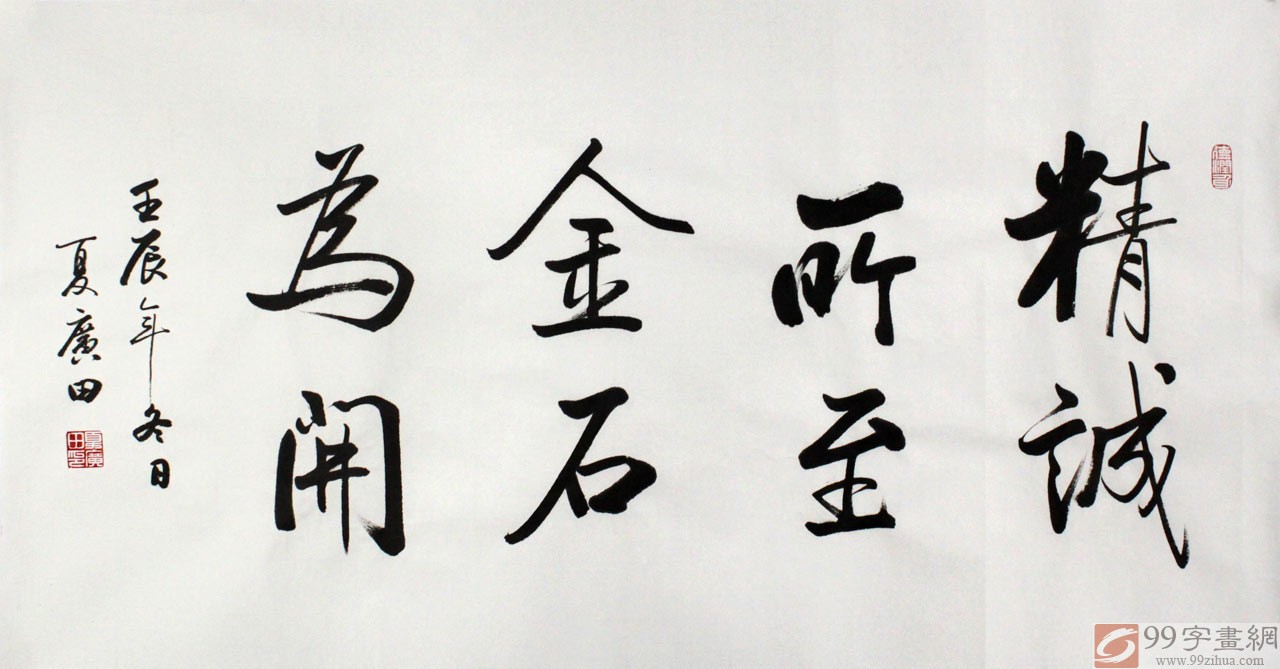 精誠
所至
金石
為開
壬辰年冬日
夏廣田
99字畫網
www.99zihua.com